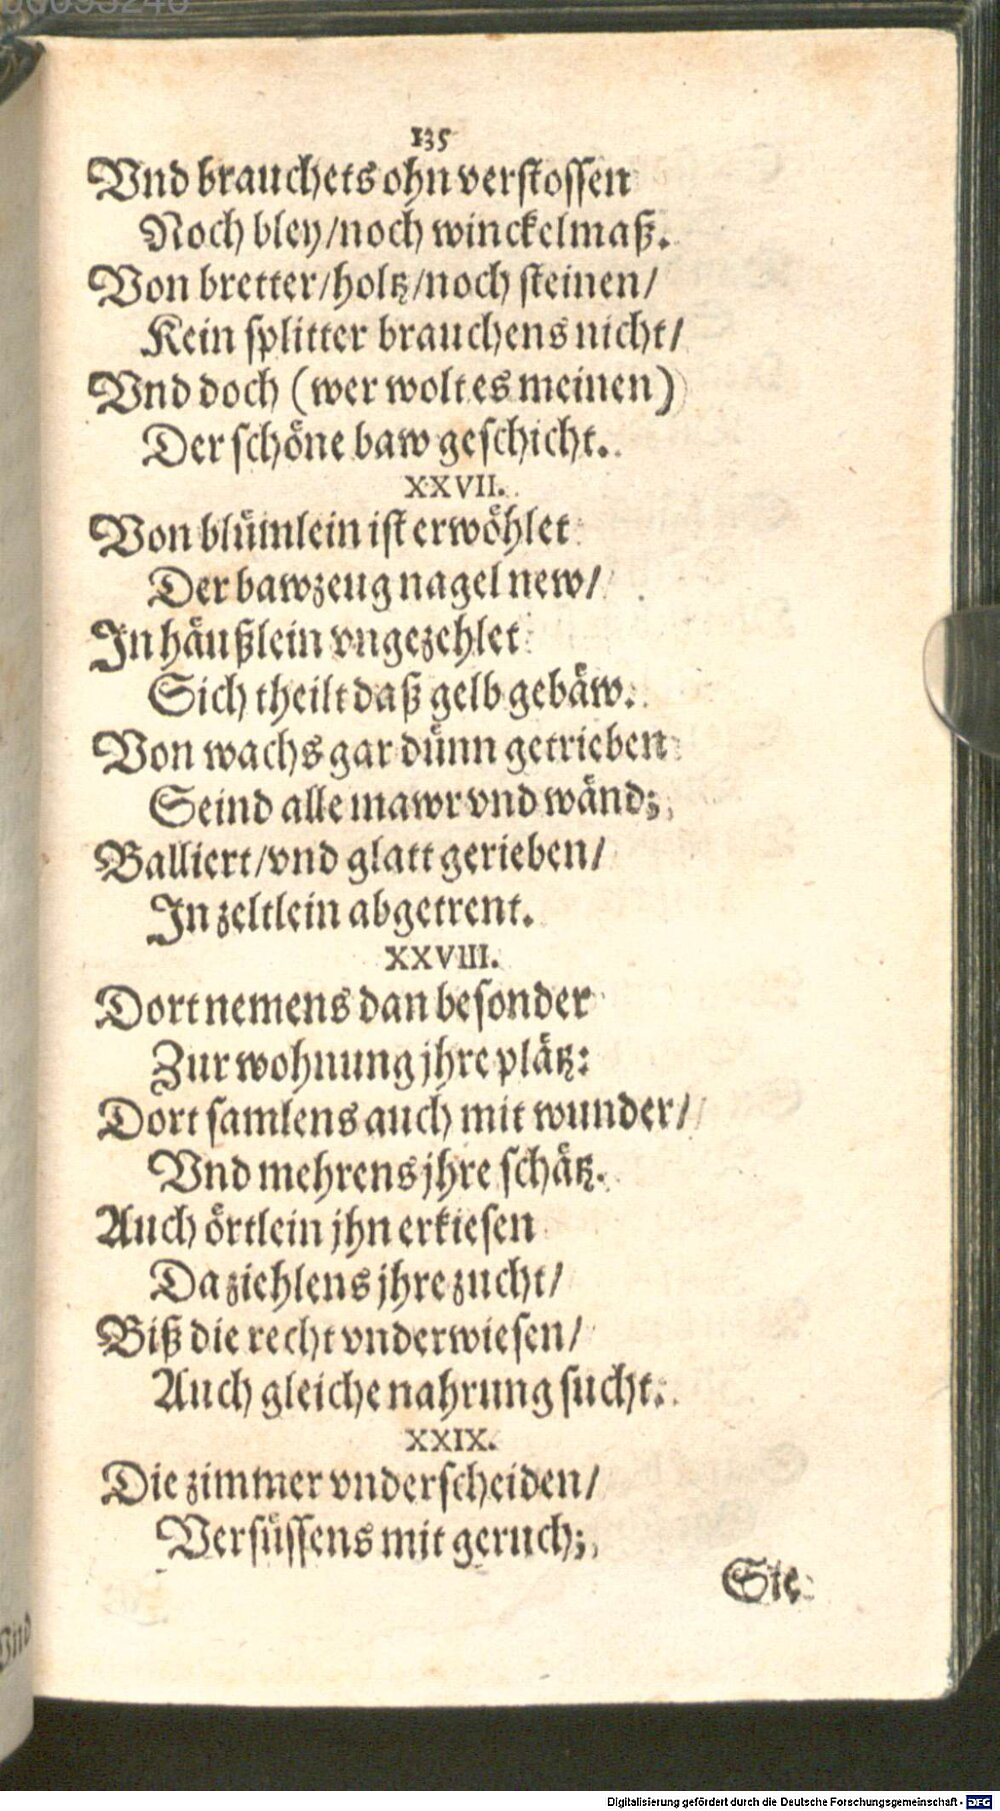 135
Vnd brauchets ohn verstossen
Noch bley/noch winckelmaß.
Von bretter/holtz/noch steinen/
Kein splitter brauchens nicht/
Vnd doch (wer wolt es meinen)
Der schöne baw geschicht.
XXVII.
Von blümlein ist erwöhlet
Der bawzeug nagel new/
In häußlein vngezehlet
Sich theilt daß gelb gebäw.
Von wachs gar dünn getrieben
Seind alle mawr vnd wänd;
Balliert/vnd glatt gerieben/
In zeltlein abgetrent.
XXVIII.
Dort nemens dan besonder
Zur wohnung jhre plätz:
Dort samlens auch mit wunder/
Vnd mehrens jhre schätz.
Auch örtlein jhn erkiesen
Da ziehlens jhre zucht/
Biß die recht vnderwiesen/
Auch gleiche nahrung sucht.
XXIX.
Die zimmer vnderscheiden/
Versüssens mit geruch;
Sie
Vnd
Digitalisierung gefördert durch die Deutsche Forschungsgemeinschaft - DFG